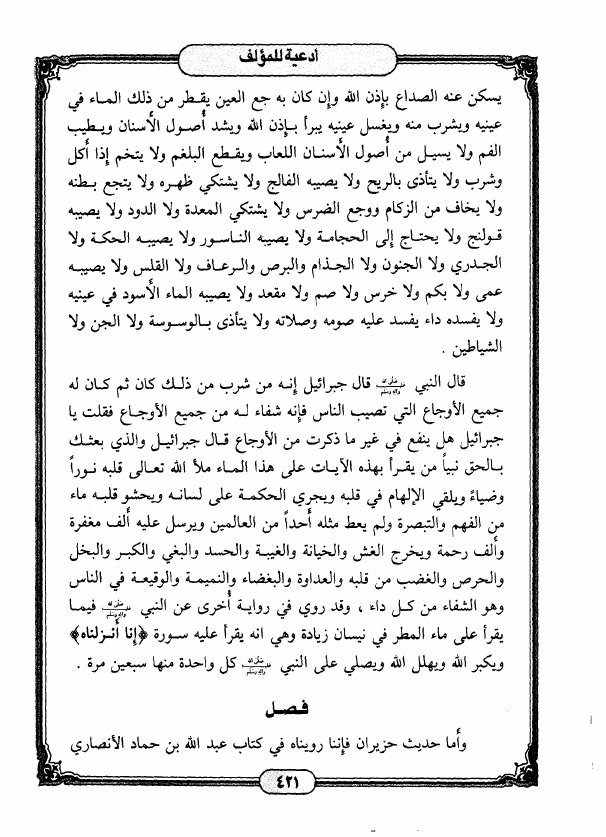 أدعية للمؤلف
يسكن عنه الصداع بإذن الله وإن كان به جع العين يقطر من ذلك الماء في
عينيه ويشرب منه ويغسل عينيه يبرأ بإذن الله ويشد أصول الأسنان ويطيب
الفم ولا يسيل من أصول الأسنان اللعاب ويقطع البلغم ولا يتخم إذا أكل
وشرب ولا يتأذى بالريح ولا يصيبه الفالج ولا يشتكي ظهره ولا يتجع بطنه
ولا يخاف من الزكام ووجع الضرس ولا يشتكي المعدة ولا الدود ولا يصيبه
قولنج ولا يحتاج إلى الحجامة ولا يصيبه الناسور ولا يصيبه الحكة ولا
الجدري ولا الجنون ولا الجذام والبرص والرعاف ولا القلس ولا يصيبه
عمى ولا بكم ولا خرس ولا صم ولا مقعد ولا يصيبه الماء الأسود في عينيه
ولا يفسده داء يفسد عليه صومه وصلاته ولا يتأذى بالوسوسة ولا الجن ولا
الشياطين .
قال النبي ﷺ قال جبرائيل إنه من شرب من ذلك كان ثم كان له
جميع الأوجاع التي تصيب الناس فإنه شفاء له من جميع الأوجاع فقلت يا
جبرائيل هل ينفع في غير ما ذكرت من الأوجاع قال جبرائيل والذي بعثك
بالحق نبياً من يقرأ بهذه الآيات على هذا الماء ملأ الله تعالى قلبه نوراً
وضياءً ويلقي الإلهام في قلبه ويجري الحكمة على لسانه ويحشو قلبه ماء
من الفهم والتبصرة ولم يعط مثله أحداً من العالمين ويرسل عليه ألف مغفرة
وألف رحمة ويخرج الغش والخيانة والغيبة والحسد والبغي والكبر والبخل
والحرص والغضب من قلبه والعداوة والبغضاء والنميمة والوقيعة في الناس
وهو الشفاء من كل داء ، وقد روي في رواية أخرى عن النبي ﷺ فيما
يقرأ على ماء المطر في نيسان زيادة وهي انه يقرأ عليه سورة ﴿إنا أنزلناه﴾
ويكبر الله ويهلل الله ويصلي على النبي ﷺ كل واحدة منها سبعين مرة .
فصل
وأما حديث حزيران فإننا رويناه في كتاب عبد الله بن حماد الأنصاري
٤٢١